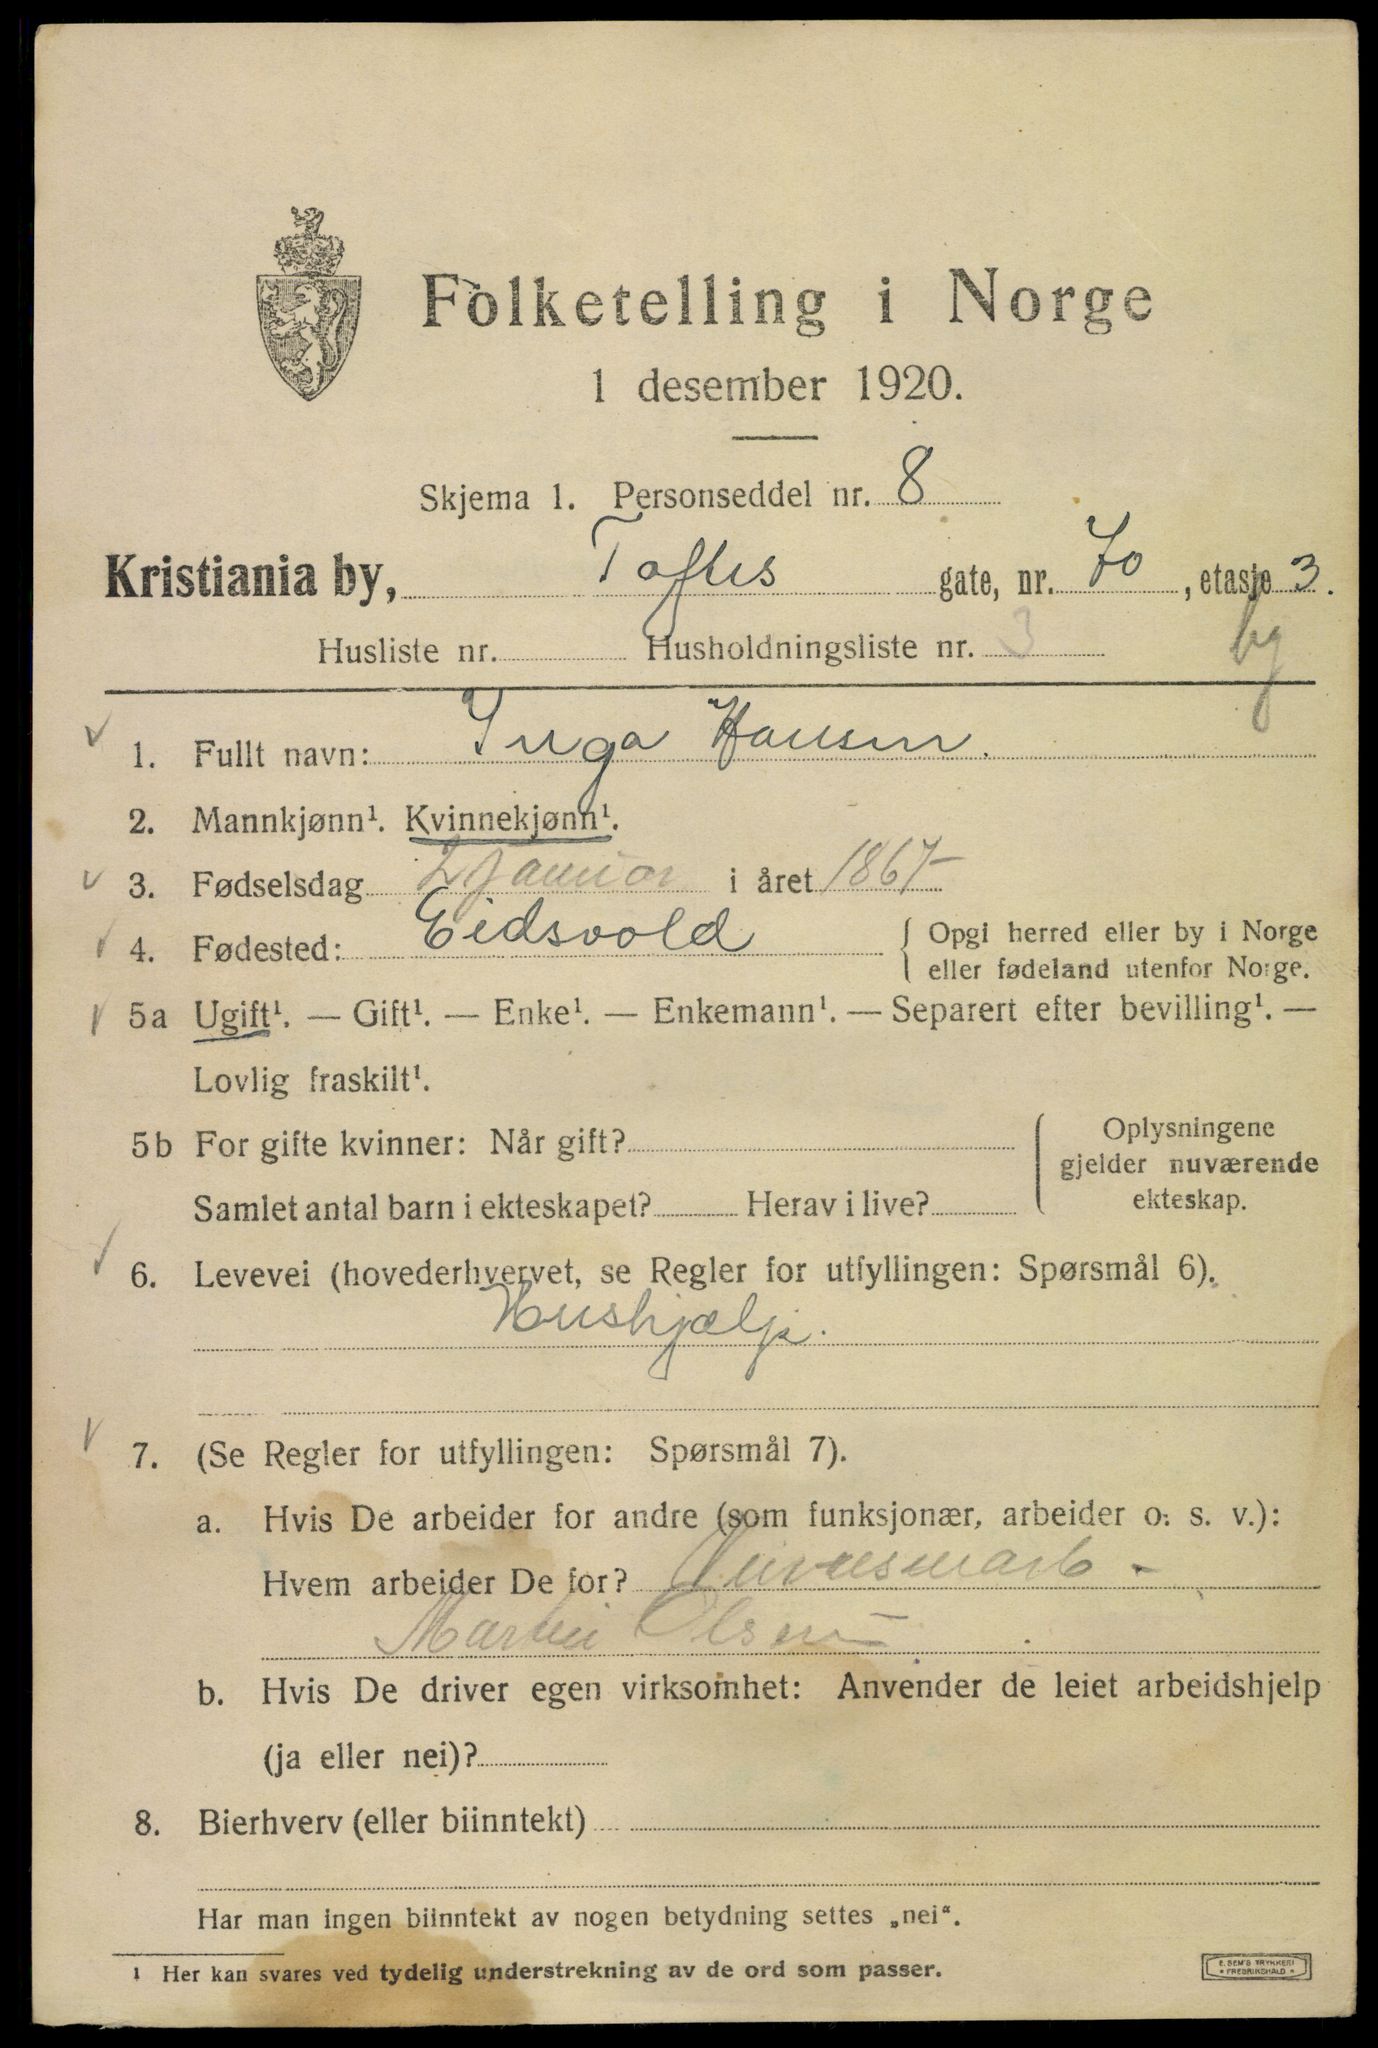 Folketelling i Norge
1 desember 1920.
Skjema 1. Personseddel nr. 8
Kristiania by, Toftes gate, nr. 70, etasje 3.
Husliste nr. Husholdningsliste nr. 3 bg
1. Fullt navn: Inga Hansen.
2. Mannkjønn¹. Kvinnekjønn¹.
3. Fødselsdag 2 Januar i året 1867
4. Fødested: Eidsvold { Opgi herred eller by i Norge
eller fødeland utenfor Norge.
5a Ugift¹. — Gift¹. — Enke¹. — Enkemann¹. — Separert efter bevilling¹. —
Lovlig fraskilt¹.
5b For gifte kvinner: Når gift? { Oplysningene
gjelder nuværende
Samlet antal barn i ekteskapet? Herav i live? ekteskap.
6. Levevei (hovederhvervet, se Regler for utfyllingen: Spørsmål 6).
Hushjælp.
7. (Se Regler for utfyllingen: Spørsmål 7).
a. Hvis De arbeider for andre (som funksjonær, arbeider o. s. v.):
Hvem arbeider De for?
Martin Olsen
b. Hvis De driver egen virksomhet: Anvender de leiet arbeidshjelp
(ja eller nei)?
8. Bierhverv (eller biinntekt)
Har man ingen biinntekt av nogen betydning settes „nei“.
¹ Her kan svares ved tydelig understrekning av de ord som passer.
E. SEM'S TRYKKERI
• FREDRIKSHALD •